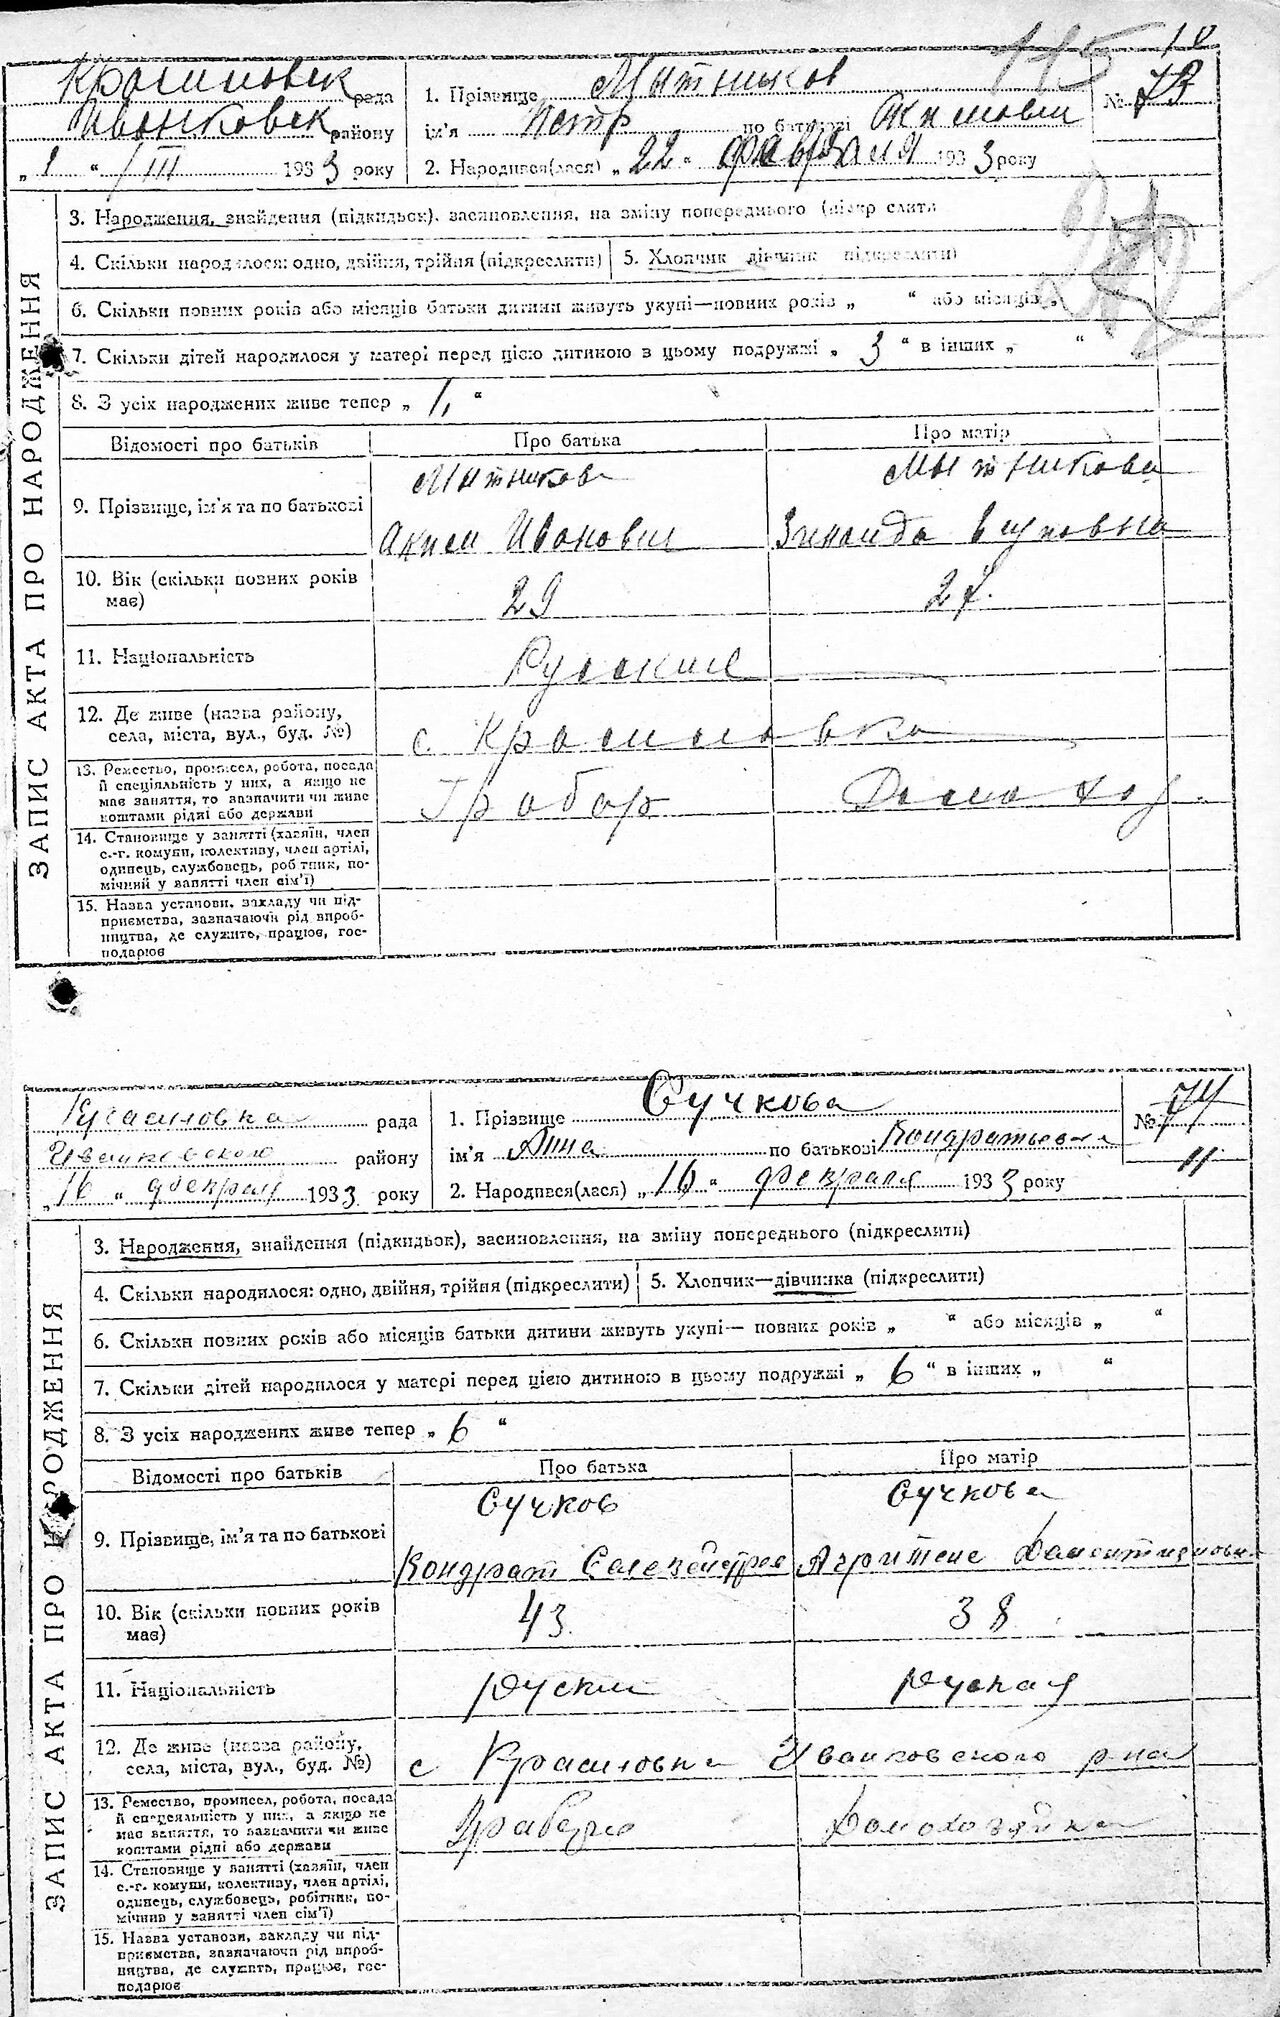 115 10
Красиловск рада
Иванковск району
„ 1 “ III 1933 року
1. Прізвище Мытников
ім'я Петр по батькові Акимович
2. Народився(лася) „ 22 “ февраля 1933 року
№ 73
ЗАПИС АКТА ПРО НАРОДЖЕННЯ
3. Народження, знайдення (підкидьок), засиновлення, на зміну попереднього
4. Скільки народилося: одно, двійня, трійня (підкреслити) 5. Хлопчик дівчинка підкреслити)
6. Скільки повних років або місяців батьки дитини живуть укупі—повних років „ “ або місяців „
7. Скільки дітей народилося у матері перед цією дитиною в цьому подружжі „ 3 “ в інших „ “
8. З усіх народжених живе тепер „ 1 “
Відомості про батьків Про батька Про матір
Мытников Мытникова
9. Прізвище, ім'я та по батькові
Аким Иванович Зинаида
10. Вік (скільки повних років
має) 29 27.
11. Національність Русские
12. Де живе (назва району,
села, міста, вул., буд. №) с. Красиловка
13. Ремество, промисел, робота, посада
й спеціяльність у них, а якщо не
має заняття, то зазначити чи живе
коштами рідні або держави
Грабор Домохоз.
14. Становище у занятті (хазяїн, член
с.-г. комуни, колективу, член артілі,
одинець, службовець, робітник, по-
мічний у занятті член сім'ї)
15. Назва установи, закладу чи під-
приємства, зазначаючи рід вироб-
ництва, де служить, працює, гос-
подарює
Красиловка рада
Иванковского району
„ 16 “ февраля 1933 року
1. Прізвище Сучкова
ім'я Анна по батькові Кондратьевна
2. Народився(лася) „ 16 “ февраля 1933 року
№ 74
11
ЗАПИС АКТА ПРО НАРОДЖЕННЯ
3. Народження, знайдення (підкидьок), засиновлення, на зміну попереднього (підкреслити)
4. Скільки народилося: одно, двійня, трійня (підкреслити) 5. Хлопчик—дівчинка (підкреслити)
6. Скільки повних років або місяців батьки дитини живуть укупі— повних років „ “ або місяців „ “
7. Скільки дітей народилося у матері перед цією дитиною в цьому подружжі „ 6 “ в інших „ “
8. З усіх народжених живе тепер „ 6 “
Відомості про батьків Про батька Про матір
Сучков Сучкова
9. Прізвище, ім'я та по батькові
Кондрат
10. Вік (скільки повних років
має) 43 38
11. Національність Руский Руская
12. Де живе (назва району,
села, міста, вул., буд. №) с Красиловка Иванковского р-на
13. Ремество, промисел, робота, посада
й спецеяльність у них, а якщо не
має заняття, то зазначити чи живе
коштами рідні або держави
Домохозяйка
14. Становище у занятті (хазяїн, член
с.-г. комуни, колективу, член артілі,
одинець, службовець, робітник, по-
мічний у занятті член сім'ї)
15. Назва установи, закладу чи під-
приємства, зазначаючи рід вироб-
ництва, де служить, працює, гос-
подарює